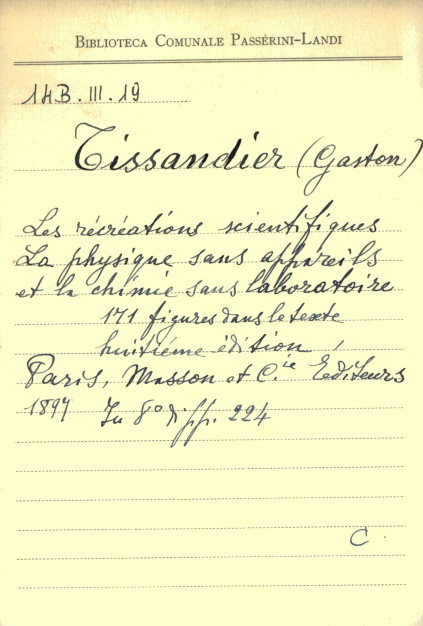 BIBLIOTECA COMUNALE PASSERINI-LANDI
14B.III.19
Tissandier (Gaston)
Les récréations scientifiques
La physique sans appareils
et la chimie sans laboratoire
171 figures dans le texte
huitiéme édition,
Paris, Masson et C.ie Editeurs
1897 In 8° di pp. 224
C.